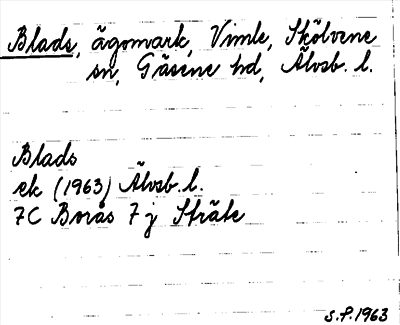 Blads, ägomark, Vimle, Skölvene
sn, Gäsene hd, Älvsb. l.
Blads
ek (1963) Älvsb. l.
7C Borås 7 j Sträte
S.P. 1963